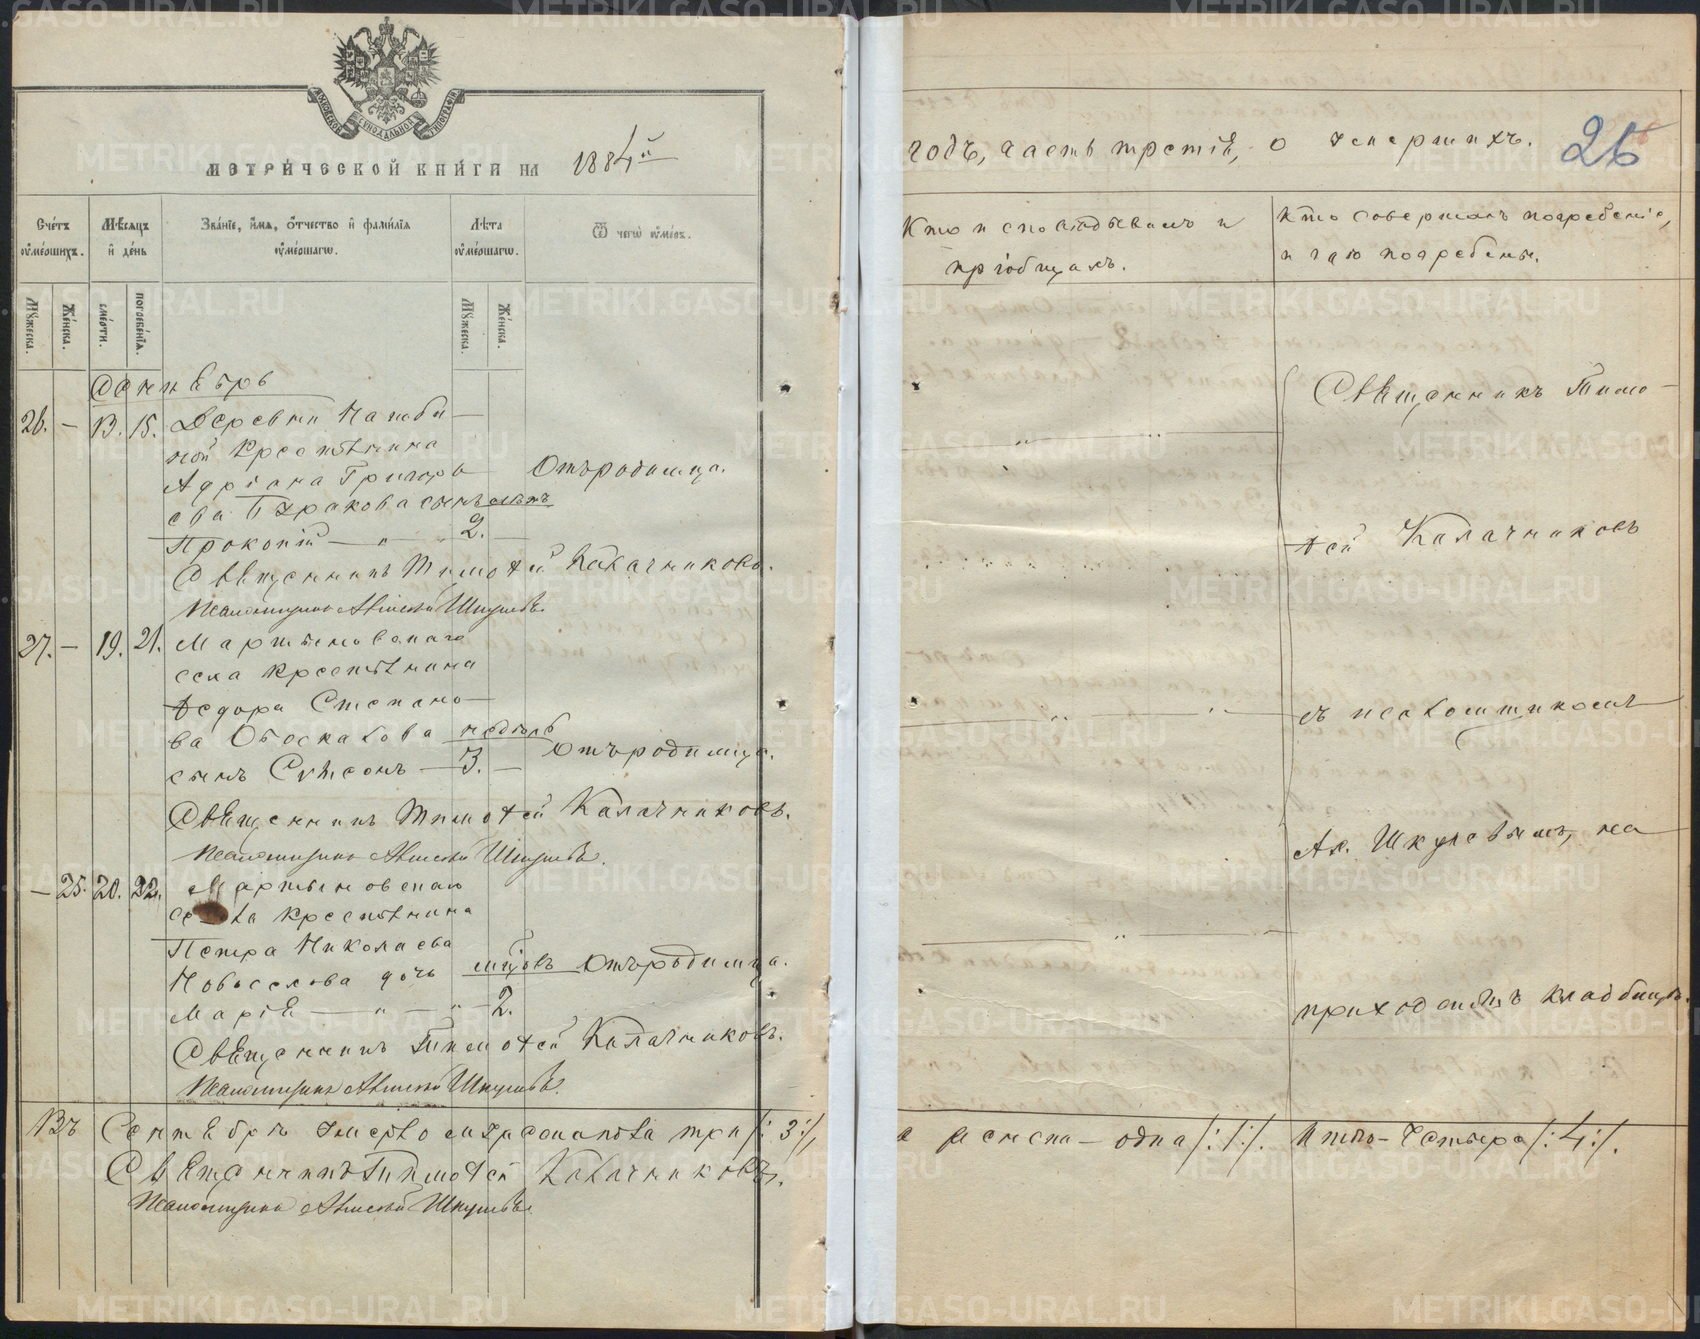 МОСКОВСКОЙ СУНОДАЛЬНОЙ ТИПОГРАФІИ
МЕТРИЧЕСКОЙ КНИГИ НА 1884й
годъ, часть третія, о умершихъ.
26
Счетъ ѹмершихъ.
Мѣсяцъ и день
Званіе, имя, отчество и фамилія ѹмершагѡ.
Лѣта ѹмершагѡ.
Ѿ чегѡ ѹмеръ.
Кто исповѣдывалъ и
пріобщалъ.
Кто совершалъ погребеніе,
и гдѣ погребены.
Мужеска.
Женска.
смерти.
погребенія.
Мужеска.
Женска.
Сентябрь
26. — 13. 15. Деревни
ной Крестьянина
Адріана Григорь
ева Буракова сынъ лѣтъ
Отъ родимца.
Прокопій — " 2. —
Священникъ Тимоѳей Калачниковъ.
Псаломщикъ Алексѣй Шкулевъ.
27. — 19. 21. Мартыновскаго
села крестьянина
Ѳедора Степано—
ва Обоскалова недѣль
сынъ Сѵмеонъ — 3. —
Отъ родимца.
Священникъ Тимоѳей Калачниковъ.
Псаломщикъ Алексѣй Шкулевъ.
— 25. 20. 22. Мартыновскаго
села крестьянина
Петра Николаева
Новоселова дочь мцовъ Отъ родимца.
Марія — " — " — 2.
Священникъ Тимоѳей Калачниковъ.
Псаломщикъ Алексѣй Шкулевъ.
Священникъ Тимо—
ѳей Калачниковъ
съ псаломщикомъ
Ал. Шкулевымъ, на
приходскомъ кладбищѣ.
Въ Сентябрѣ умерло мужеска пола три /: 3:/,
а женска — одна /: 1:/. Итого — Четыре /: 4:/.
Священникъ Тимоѳей Калачниковъ.
Псаломщикъ Алексѣй Шкулевъ.
METRIKI.GASO-URAL.RU